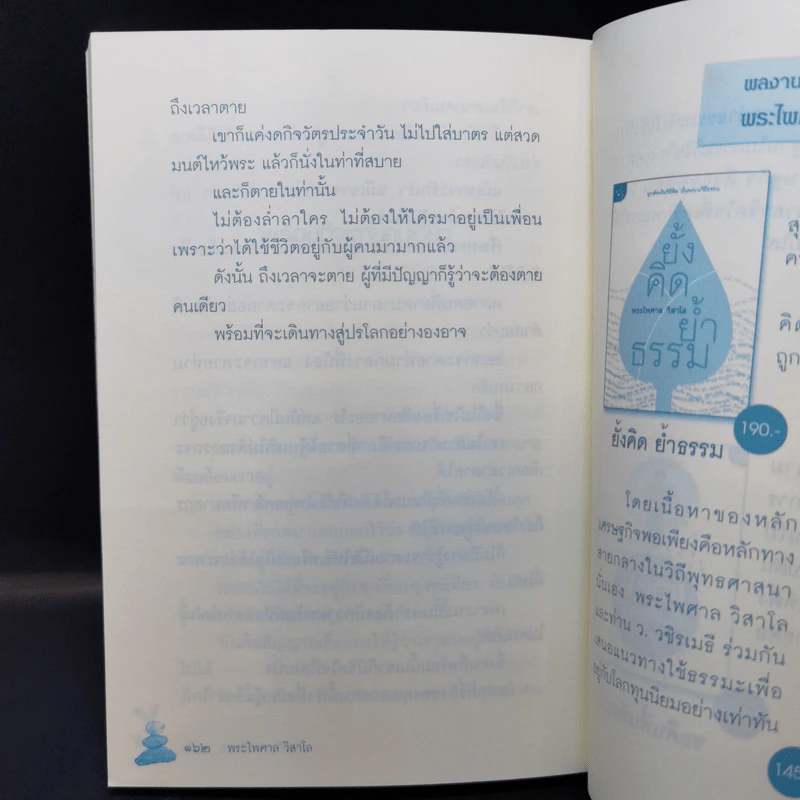 ถึงเวลาตาย
เขาก็แค่งดกิจวัตรประจำวัน ไม่ไปใส่บาตร แต่สวด
มนต์ไหว้พระ แล้วก็นั่งในท่าที่สบาย
และก็ตายในท่านั้น
ไม่ต้องล่ำลาใคร ไม่ต้องให้ใครมาอยู่เป็นเพื่อน
เพราะว่าได้ใช้ชีวิตอยู่กับผู้คนมามากแล้ว
ดังนั้น ถึงเวลาจะตาย ผู้ที่มีปัญญาก็รู้ว่าจะต้องตาย
คนเดียว
พร้อมที่จะเดินทางสู่ปรโลกอย่างองอาจ
๑๖๒ พระไพศาล วิสาโล
ผลงาน
พระไพ
ยั้ง
คิด
พระไพศาล วิสาโล
ย้ำ
ธรรม
190.-
ยั้งคิด ย้ำธรรม
สุ
ค
คิด
ถูก
โดยเนื้อหาของหลัก
เศรษฐกิจพอเพียงคือหลักทาง
สายกลางในวิถีพุทธศาสนา
นั่นเอง พระไพศาล วิสาโล
และท่าน ว. วชิรเมธี ร่วมกัน
เสนอแนวทางใช้ธรรมะเพื่อ
อยู่กับโลกทุนนิยมอย่างเท่าทัน
145